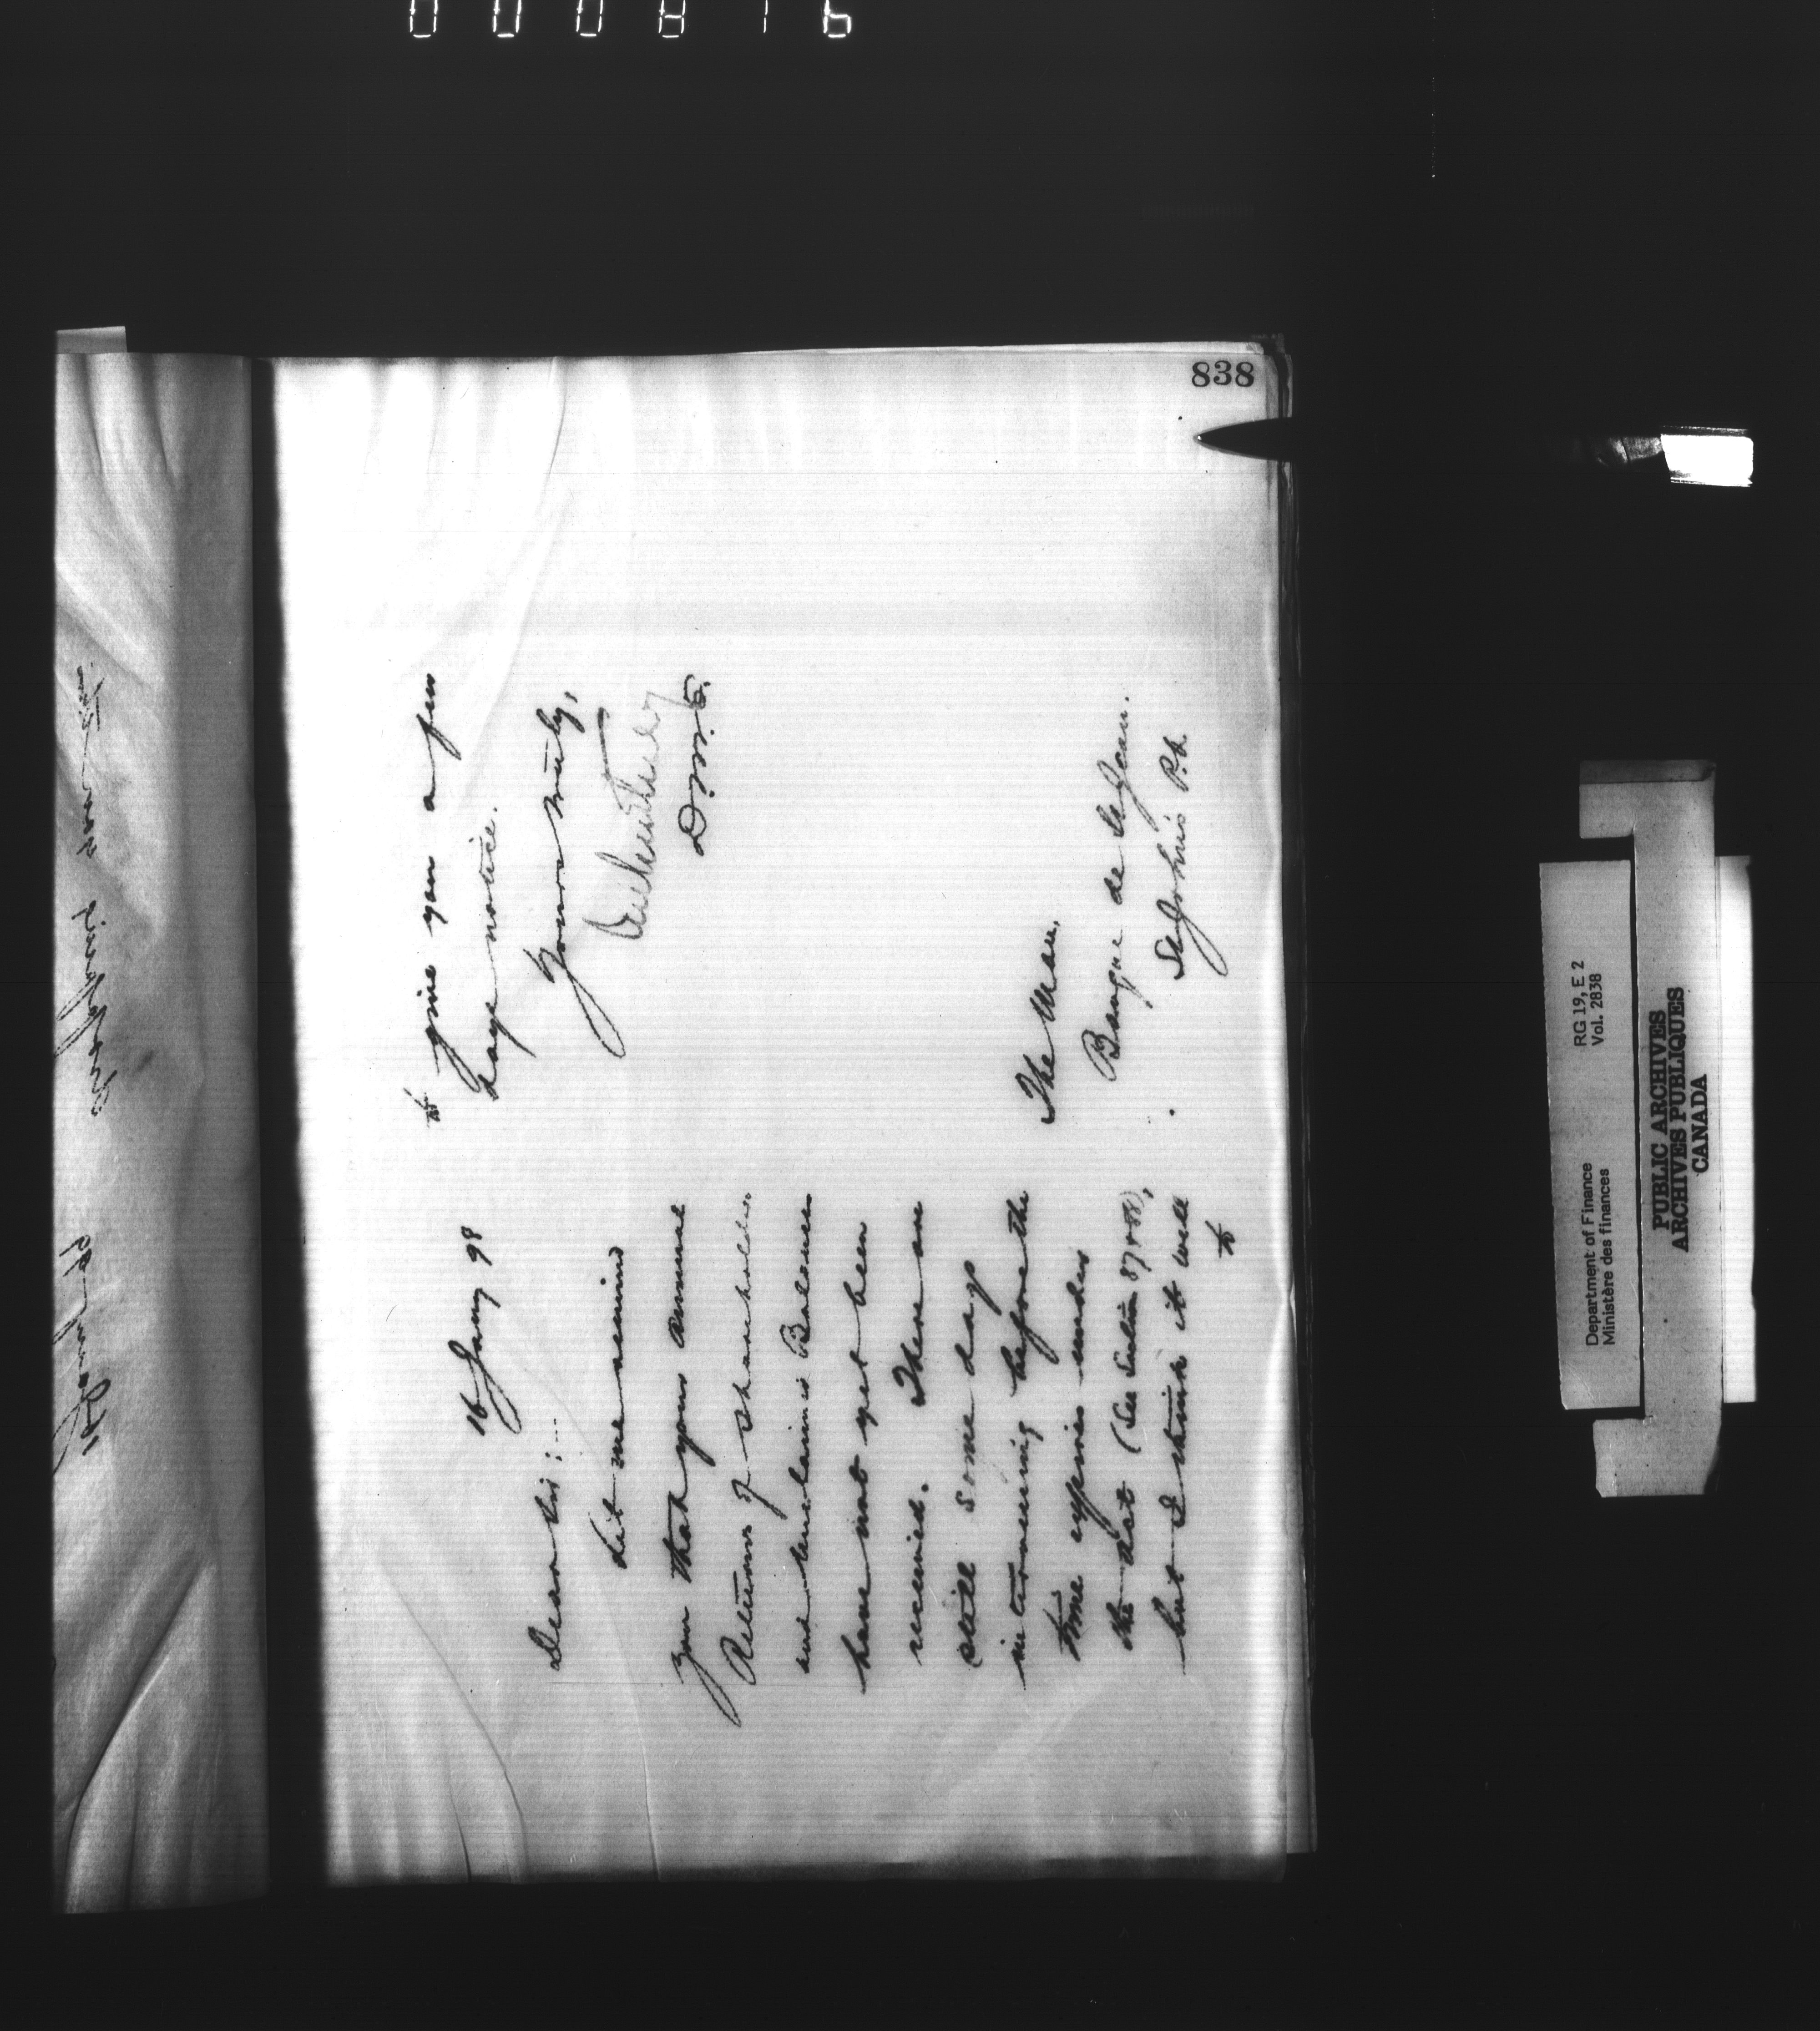 838
16 Jany 98
Dear Sir :—
Let me remind
you that your annual
Returns of shareholders
and unclaimed Balances
have not yet been
received. There are
still some days
intervening before the
time expires under
the Act (See Section 87 & 88),
but I think it well
to
to give you a few
days notice.
Yours truly,
D.M.F.
The Man.
Banque de St Jean.
St Johns P.Q.
Department of Finance
Ministère des finances
RG 19, E 2
Vol. 2838
PUBLIC ARCHIVES
ARCHIVES PUBLIQUES
CANADA